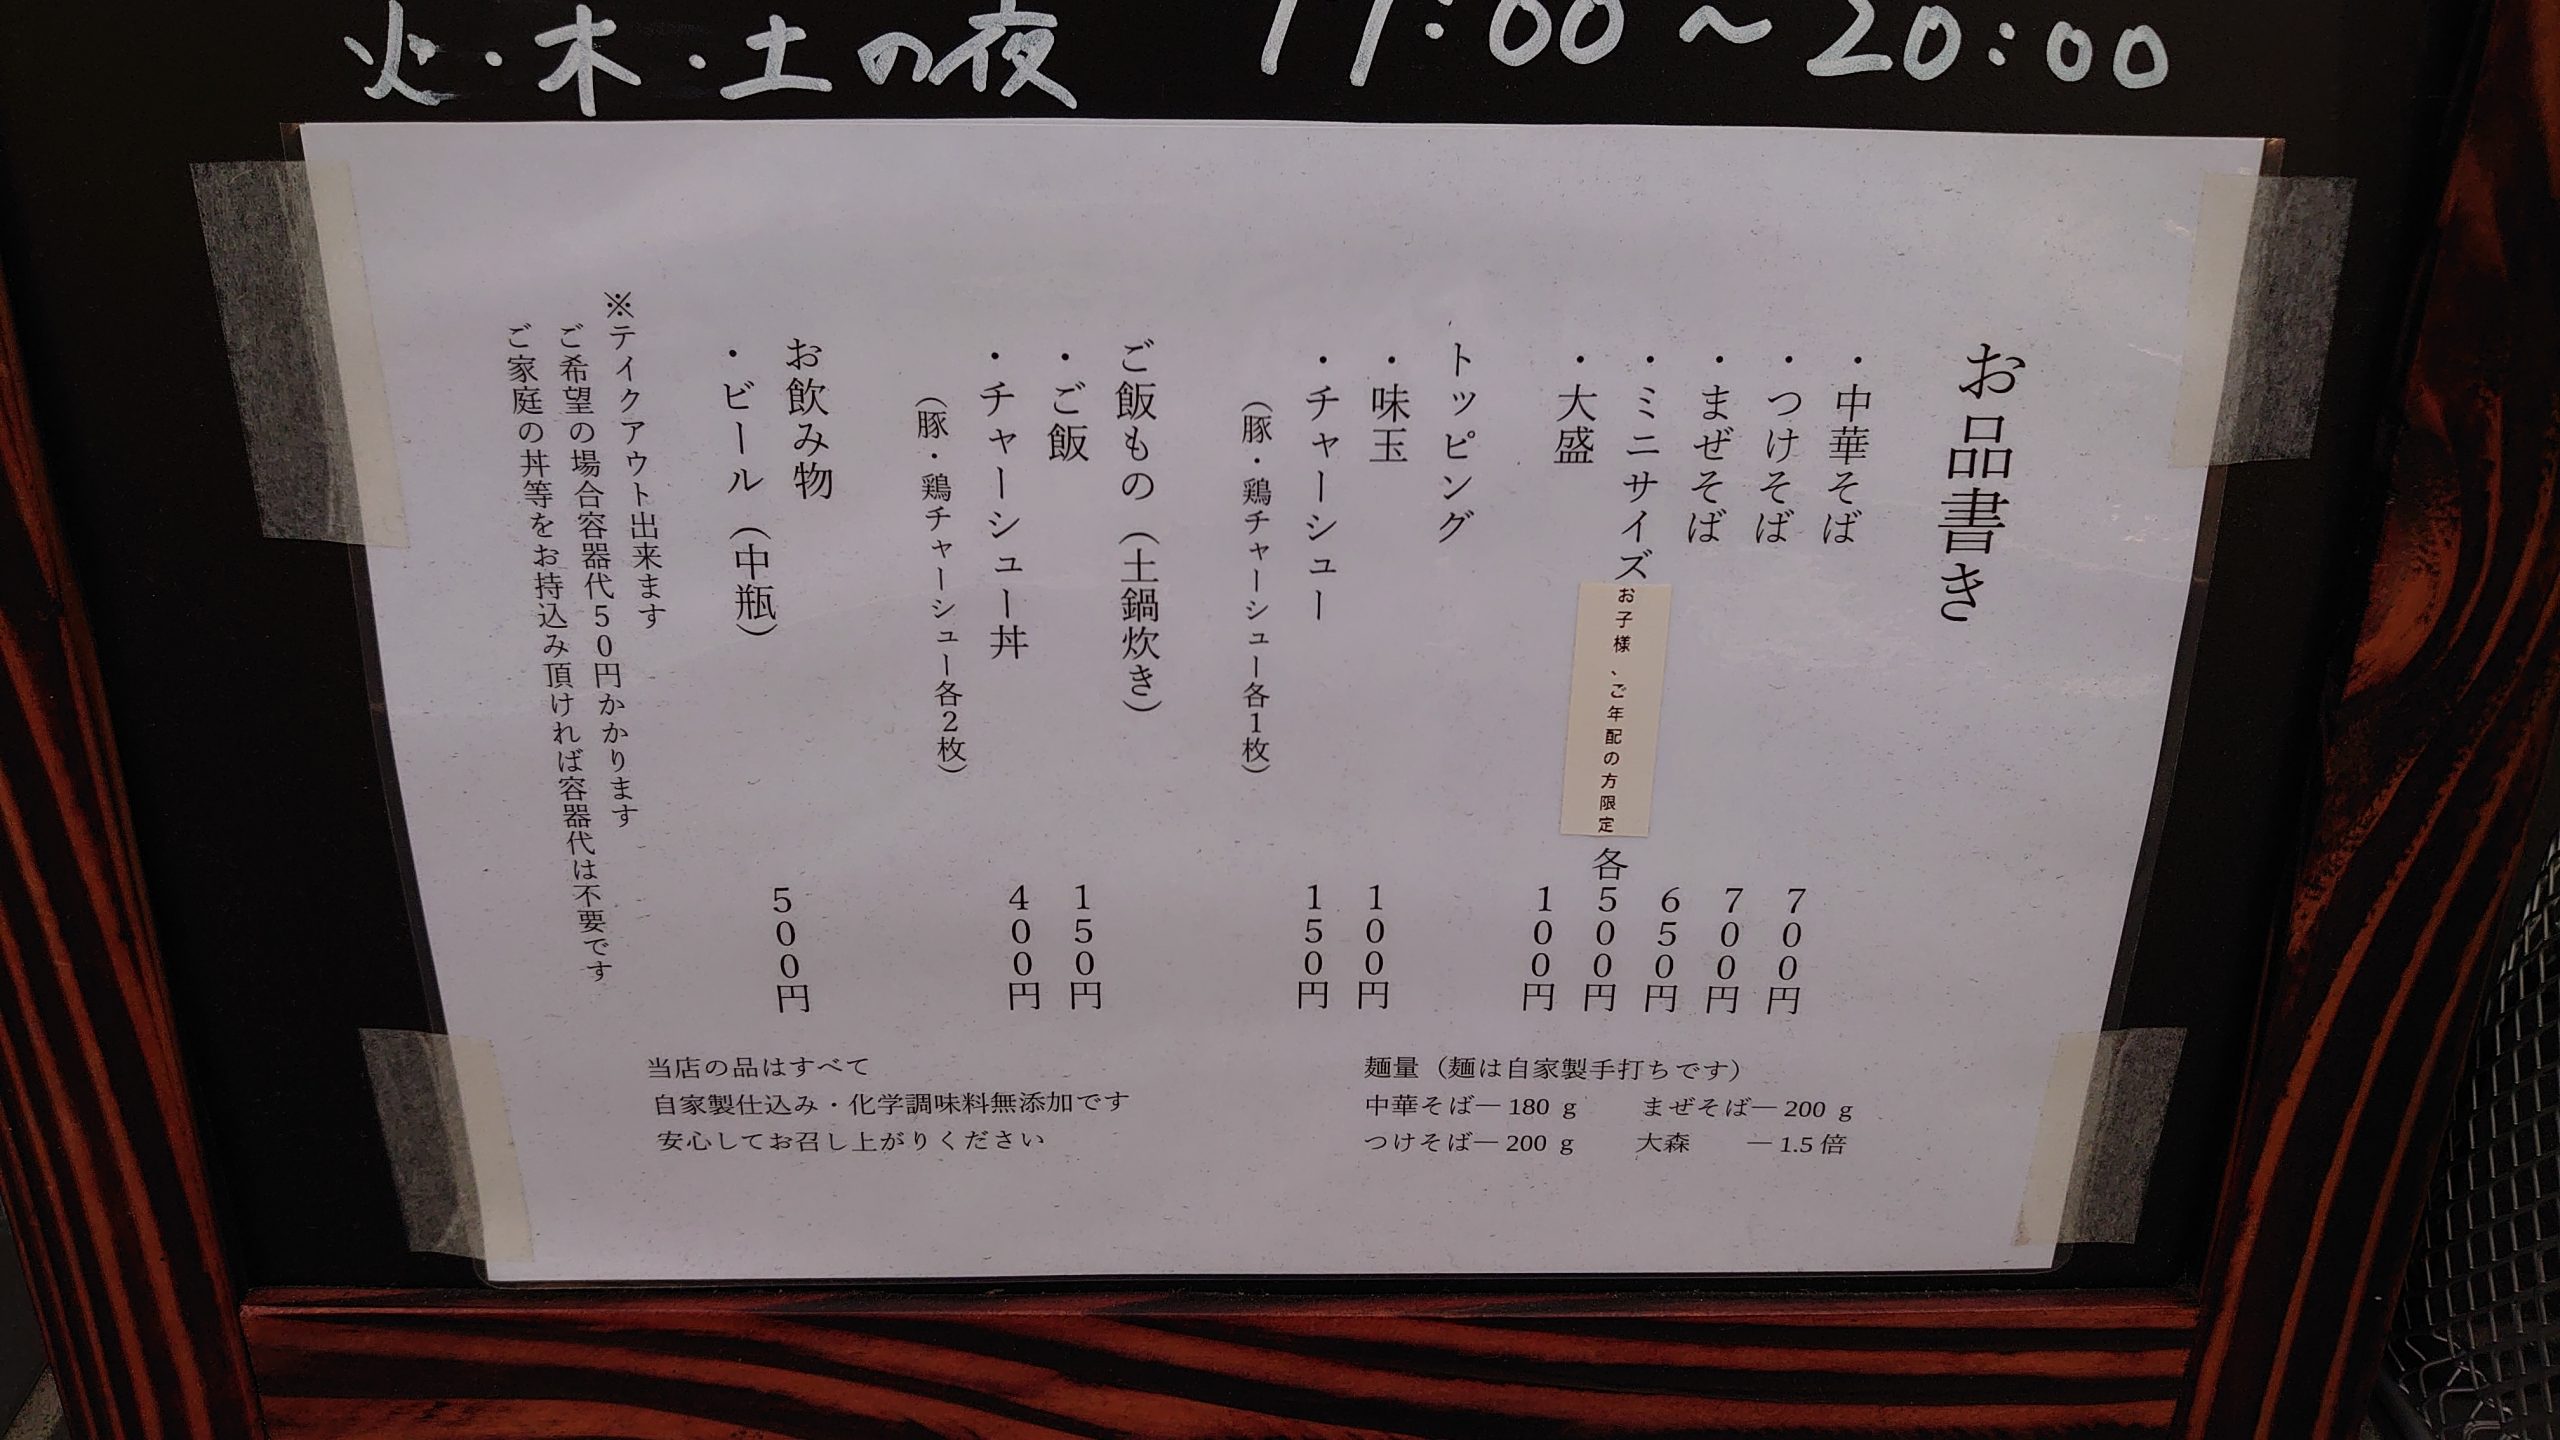 火・木・土の夜 17:00～20:00
お品書き
・中華そば 700円
・つけそば 700円
・まぜそば 650円
・ミニサイズ お子様、ご年配の方限定 各500円
・大盛 100円
トッピング
・味玉 100円
・チャーシュー 150円
（豚・鶏チャーシュー各1枚）
ご飯もの（土鍋炊き）
・ご飯 150円
・チャーシュー丼 400円
（豚・鶏チャーシュー各2枚）
お飲み物
・ビール（中瓶） 500円
※テイクアウト出来ます
ご希望の場合容器代50円かかります
ご家庭の丼等をお持込み頂ければ容器代は不要です
麺量（麺は自家製手打ちです）
中華そば― 180 g まぜそば― 200 g
つけそば― 200 g 大森 ― 1.5 倍
当店の品はすべて
自家製仕込み・化学調味料無添加です
安心してお召し上がりください